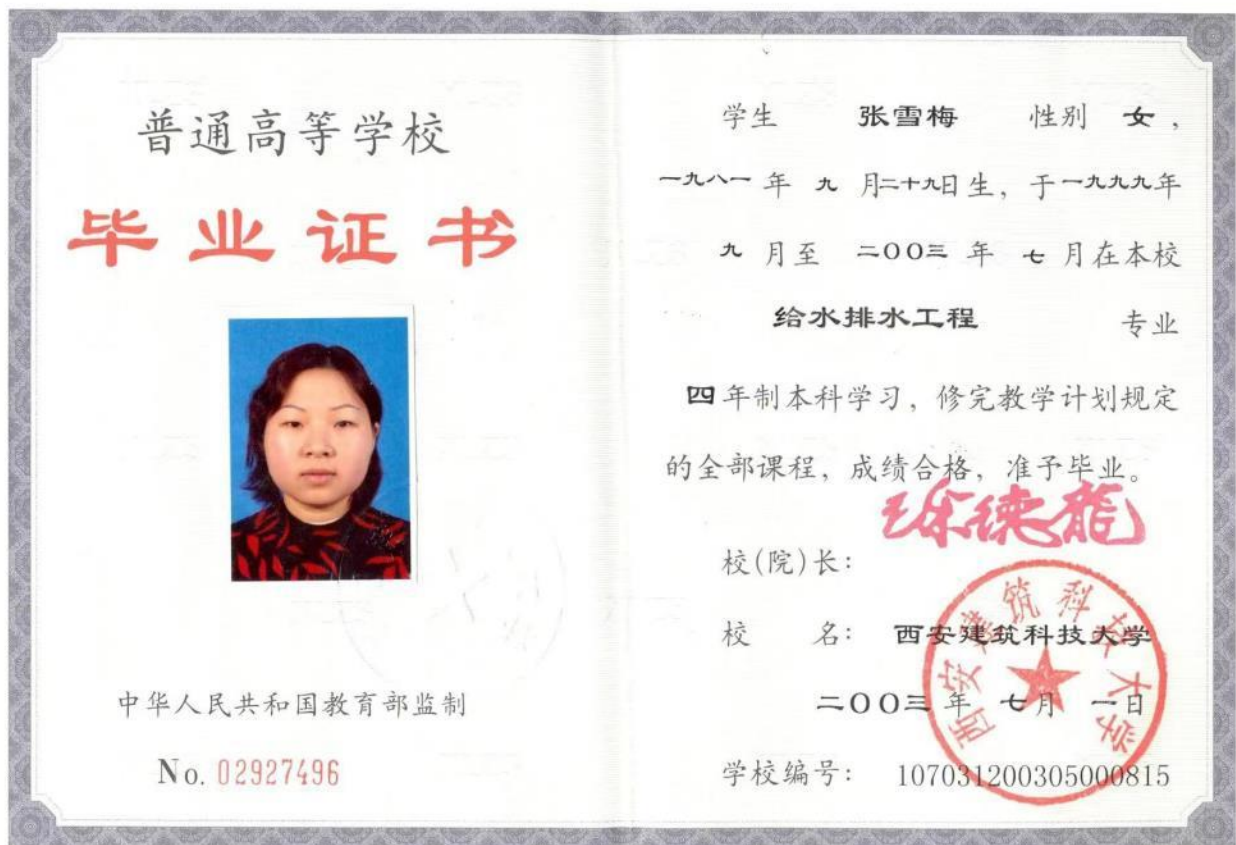 普通高等学校
毕业证书
中华人民共和国教育部监制
No. 02927496
学生 张雪梅 性别 女，
一九八一 年 九 月二十九日生，于一九九九年
九 月至 二〇〇三 年 七 月在本校
给水排水工程 专业
四年制本科学习，修完教学计划规定
的全部课程，成绩合格，准予毕业。
校(院)长：徐德龙
校 名：西安建筑科技大学
二〇〇三 年 七月 一日
西安建筑科技大学
学校编号：107031200305000815